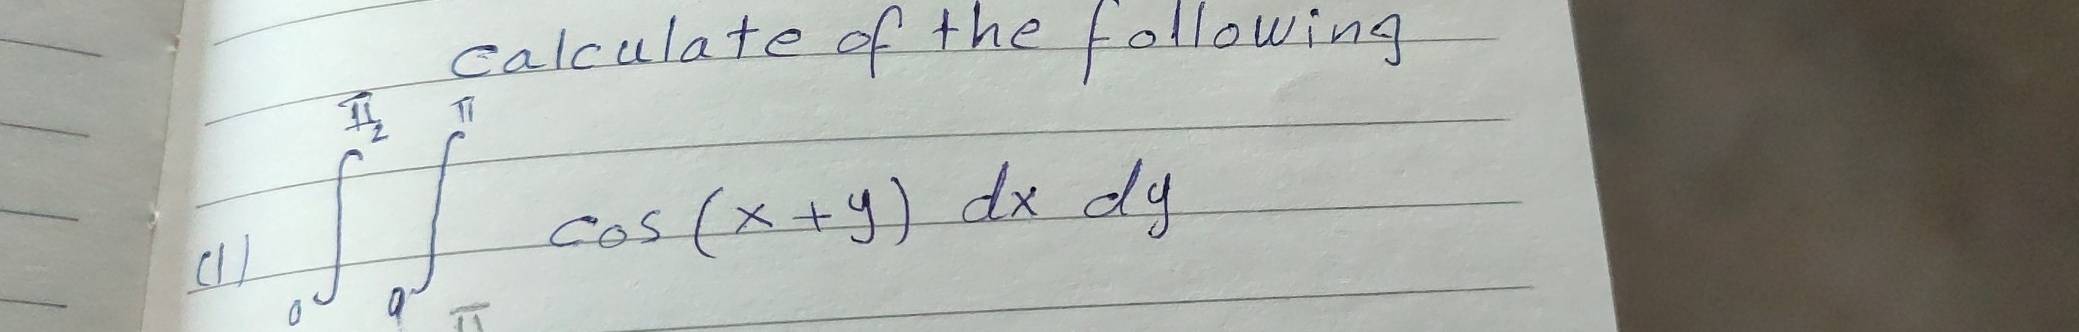 calculate of the following
(1) ∫₀^{π/2} ∫₀^{π} cos (x + y) dx dy
π